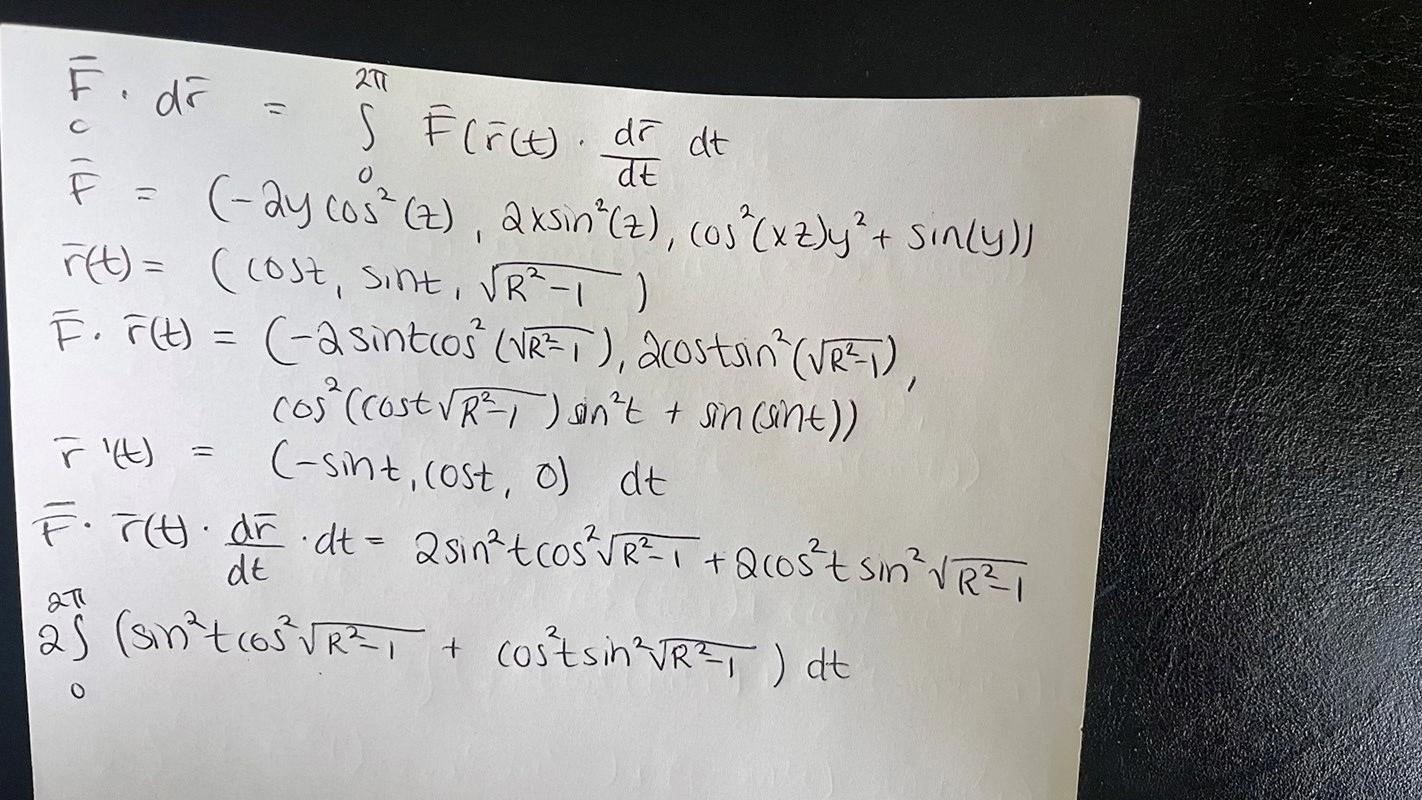 F̅ · dr̅ = ∫ F̅(r̅(t) · dr̅/dt dt
c 0 2π
F̅ = (-2y cos²(z), 2x sin²(z), cos²(xz)y² + sin(y))
r̅(t) = (cost, sint, √(R²-1))
F̅ · r̅(t) = (-2sintcos²(√(R²-1)), 2costsin²(√(R²-1)),
cos²(cost√(R²-1)) sin²t + sin(sint))
r̅'(t) = (-sint, cost, 0) dt
F̅ · r̅(t) · dr̅/dt · dt = 2sin²t cos²√(R²-1) + 2cos²t sin²√(R²-1)
2∫₀²π (sin²t cos²√(R²-1) + cos²t sin²√(R²-1)) dt